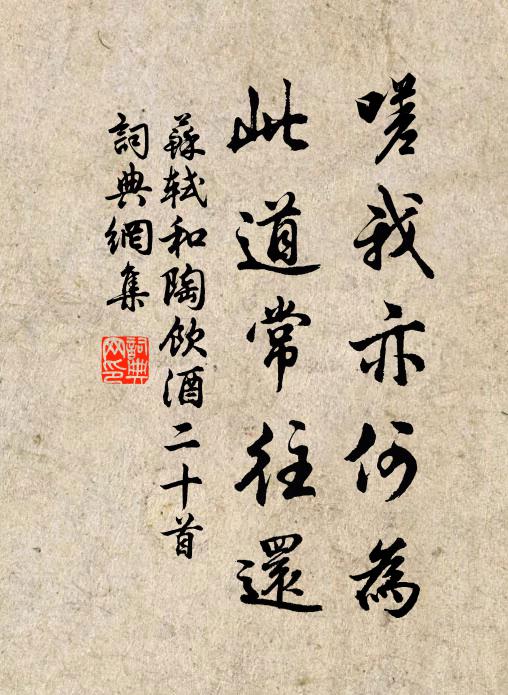 嗟我亦何為
此道常往還
蘇軾和陶飲酒二十首
詞典網集
詞典網印